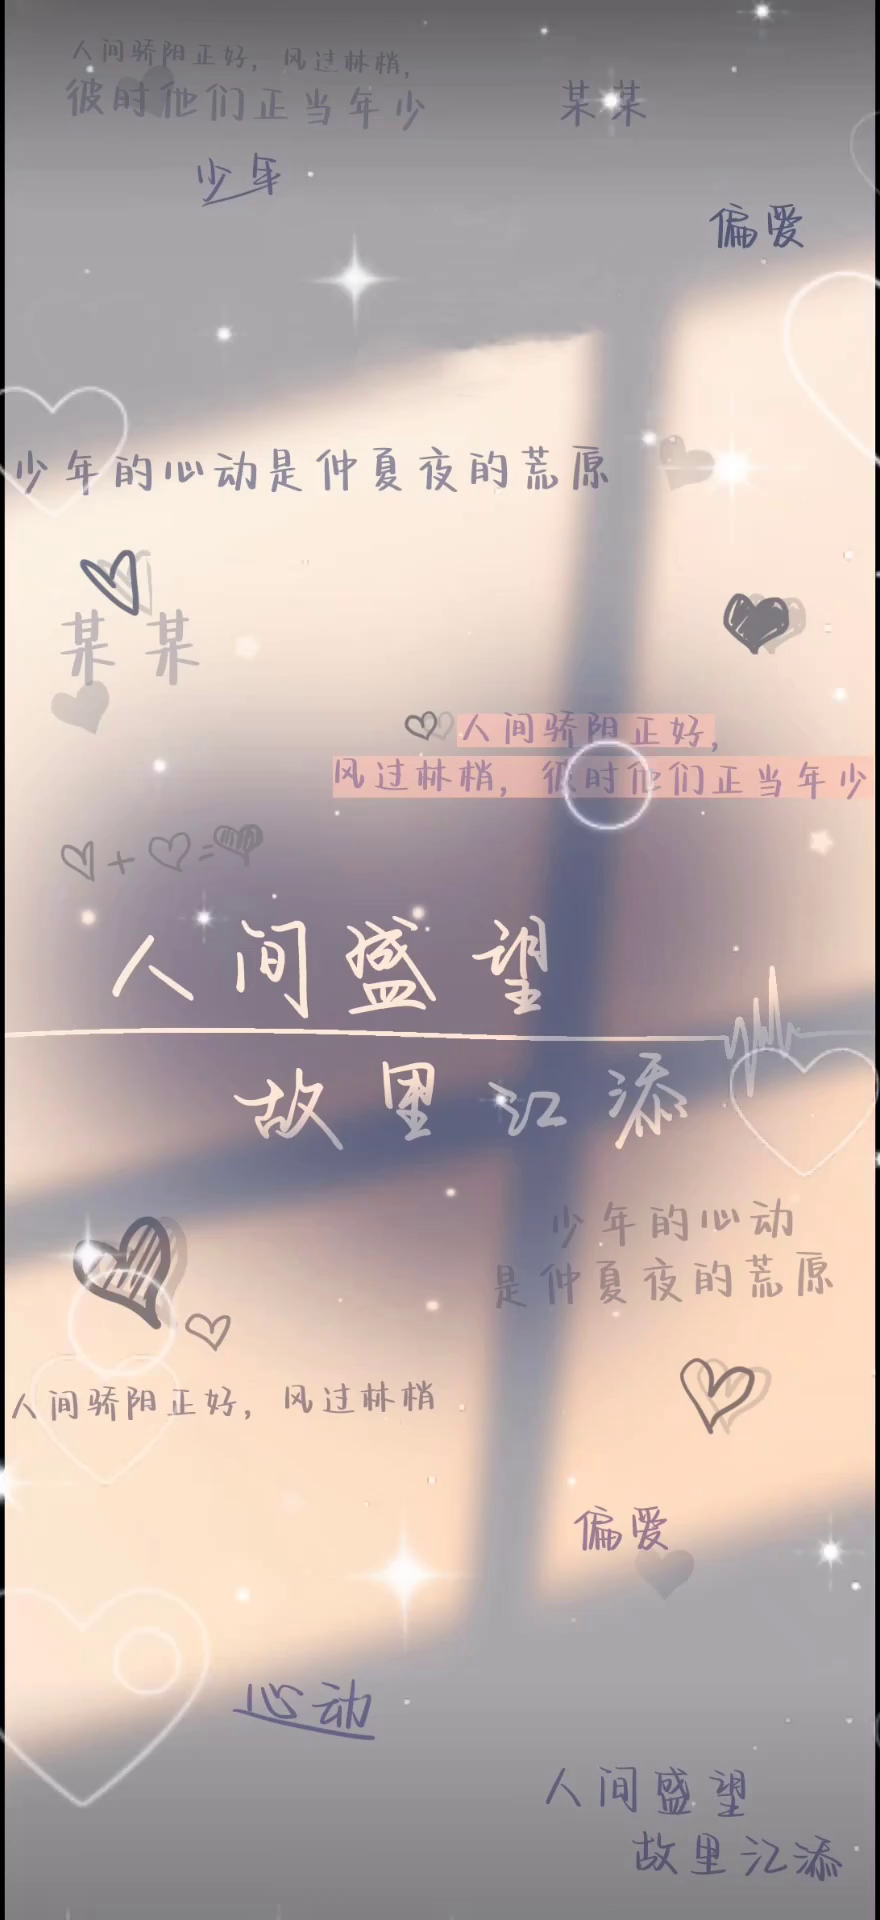 人间骄阳正好，风过林梢，
彼时他们正当年少
某某
少年
偏爱
少年的心动是仲夏夜的荒原
某某
人间骄阳正好，
风过林梢，彼时他们正当年少
+ =
人间盛望
故里江添
少年的心动
是仲夏夜的荒原
人间骄阳正好，风过林梢
偏爱
心动
人间盛望
故里江添